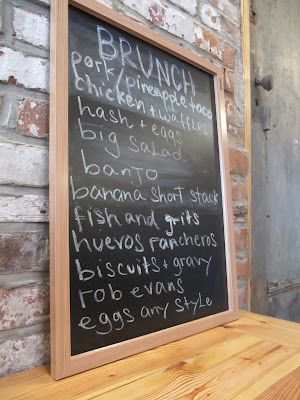 BRUNCH
pork/pineapple taco
chicken + waffles
hash + eggs
big salad
banjo
banana short stack
fish and grits
huevos rancheros
biscuits + gravy
rob evans
eggs any style